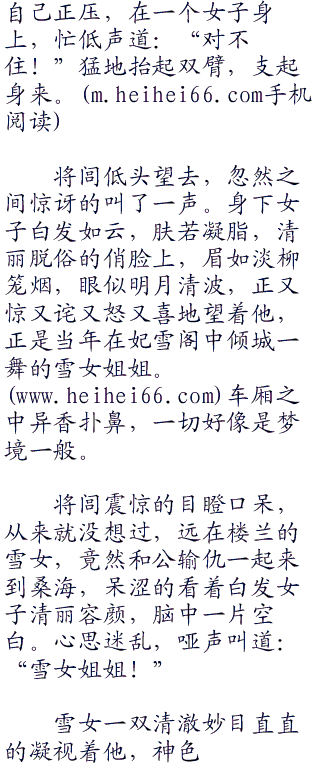 自己正压，在一个女子身
上，忙低声道：“对不
住！”猛地抬起双臂，支起
身来。(m.heihei66.com手机
阅读)
将闾低头望去，忽然之
间惊讶的叫了一声。身下女
子白发如云，肤若凝脂，清
丽脱俗的俏脸上，眉如淡柳
笼烟，眼似明月清波，正又
惊又诧又怒又喜地望着他，
正是当年在妃雪阁中倾城一
舞的雪女姐姐。
(www.heihei66.com)车厢之
中异香扑鼻，一切好像是梦
境一般。
将闾震惊的目瞪口呆，
从来就没想过，远在楼兰的
雪女，竟然和公输仇一起来
到桑海，呆涩的看着白发女
子清丽容颜，脑中一片空
白。心思迷乱，哑声叫道：
“雪女姐姐！”
雪女一双清澈妙目直直
的凝视着他，神色